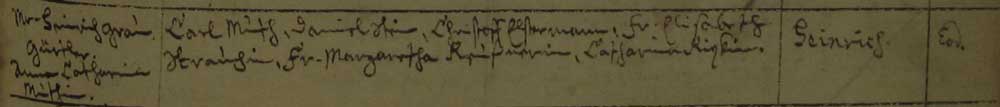 Mr. Heinrich Grau.
Gürtler.
Anna Catharina
Muthin.
Carl Muth, Daniel Stein, Christoff Ostermann, Fr. Elisabeth
Strauchin, Fr. Margaretha, Catharina
Heinrich.
Eod.